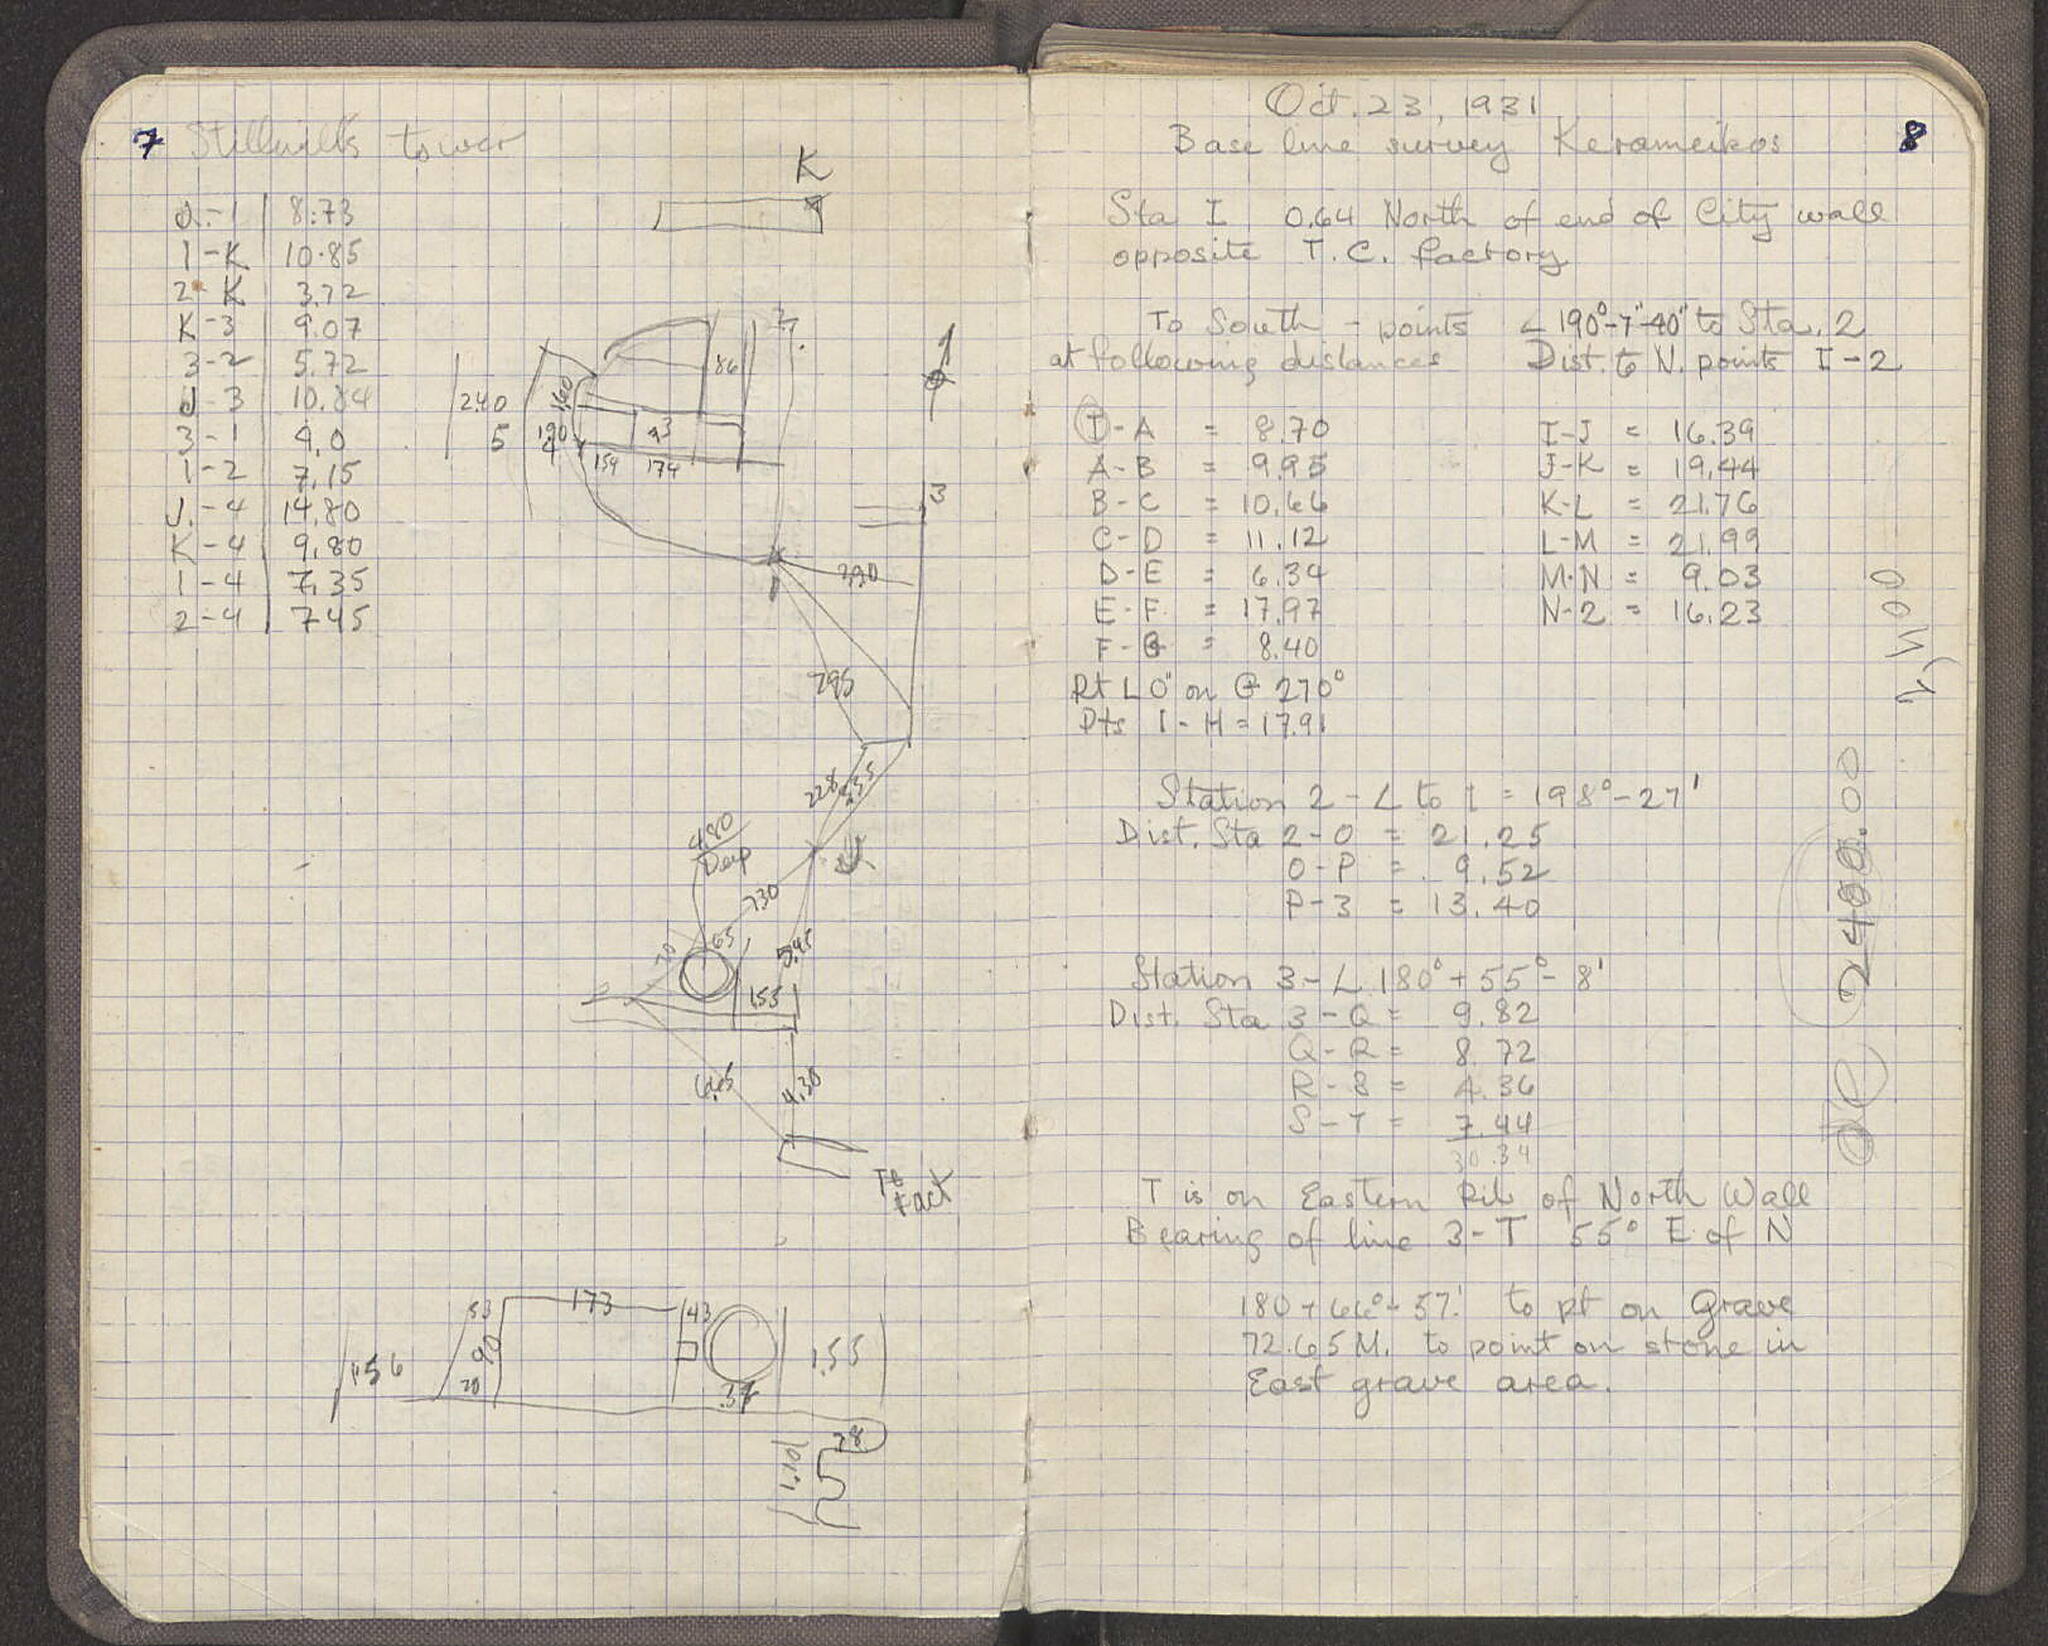 7
tower
J-1 8.73
1-K 10.85
2-K 3.72
K-3 9.07
3-2 5.72
J-3 10.84
3-1 4.0
1-2 7.15
J-4 14.80
K-4 9.80
1-4 7.35
2-4 7.45
K
2
86
2.40
5
1.60
1.90
4
43
159
174
3
1
290
795
228
4.80
Deep
730
65
70
5.45
1.55
6.65
4.30
Fact
53
173
43
90
20
1.55
.37
78
1.10
8
Oct. 23, 1931
Base line survey Kerameikos
Sta I 0.64 North of end of City wall
opposite T.C. factory
To South - points ∠ 190°-7"-40" to Sta. 2
at following distances Dist. to N. points I-2
I-A = 8.70 I-J = 16.39
A-B = 9.95 J-K = 19.44
B-C = 10.66 K-L = 21.76
C-D = 11.12 L-M = 21.99
D-E = 6.34 M-N = 9.03
E-F = 17.97 N-2 = 16.23
F-G = 8.40
Rt ∠ 0" on G 270°
Pts I-H = 17.91
Station 2 - ∠ to I = 198°-27'
Dist. Sta 2-O = 21.25
O-P = 9.52
P-3 = 13.40
Station 3 - ∠ 180° + 55°-8'
Dist. Sta 3-Q = 9.82
Q-R = 8.72
R-S = 4.36
S-T = 7.44
30.34
T is on Eastern of North Wall
Bearing of line 3-T 55° E of N
180 + 66°-57' to pt on Grave
72.65 M. to point on stone in
East grave area.
2400.00